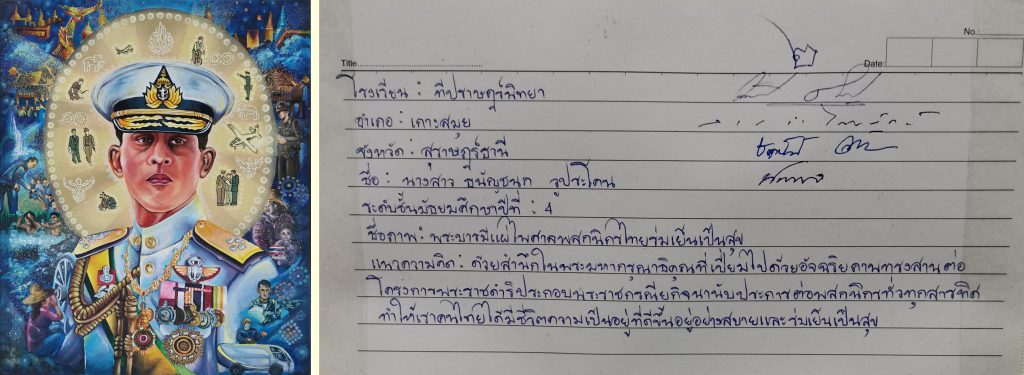 No.:
Title
Date:
โรงเรียน : ทีปราษฎร์พิทยา
อำเภอ : เกาะสมุย
จังหวัด : สุราษฎร์ธานี
ชื่อ : นางสาว ธนัญชนก วูประโดน
ระดับชั้นมัธยมศึกษาปีที่ : 4
ชื่อภาพ : พระบารมีแผ่ไพศาลพสกนิกรไทยร่มเย็นเป็นสุข
แนวความคิด : ด้วยสำนึกในพระมหากรุณาธิคุณที่เปี่ยมไปด้วยอัจฉริยภาพทรงสานต่อ
โครงการพระราชดำริประกอบพระราชกรณียกิจนานัปประการต่อพสกนิกรทั่วทุกสารทิศ
ทำให้เราคนไทยได้มีชีวิตความเป็นอยู่ที่ดีขึ้นอยู่อย่างสบายและร่มเย็นเป็นสุข